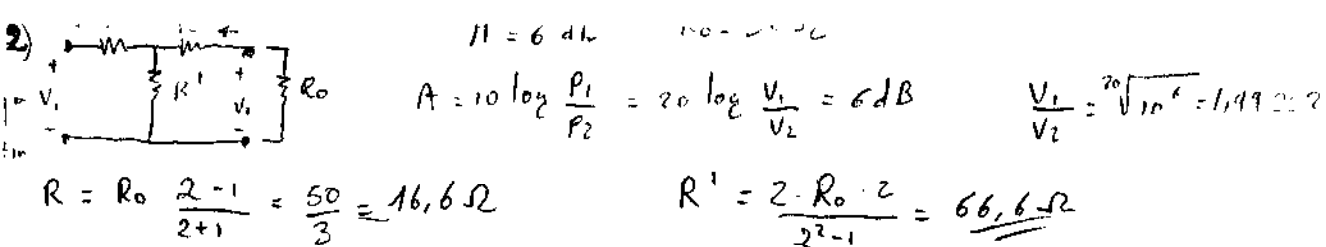 2)
V₁ R' V₂ R₀
A = 6 dB
A = 10 log P₁/P₂ = 20 log V₁/V₂ = 6 dB    V₁/V₂ = ²⁰√10⁶ = 1,99 ≅ 2
R = R₀ (2-1)/(2+1) = 50/3 = 16,6 Ω    R' = (2 · R₀ · 2)/(2²-1) = 66,6 Ω